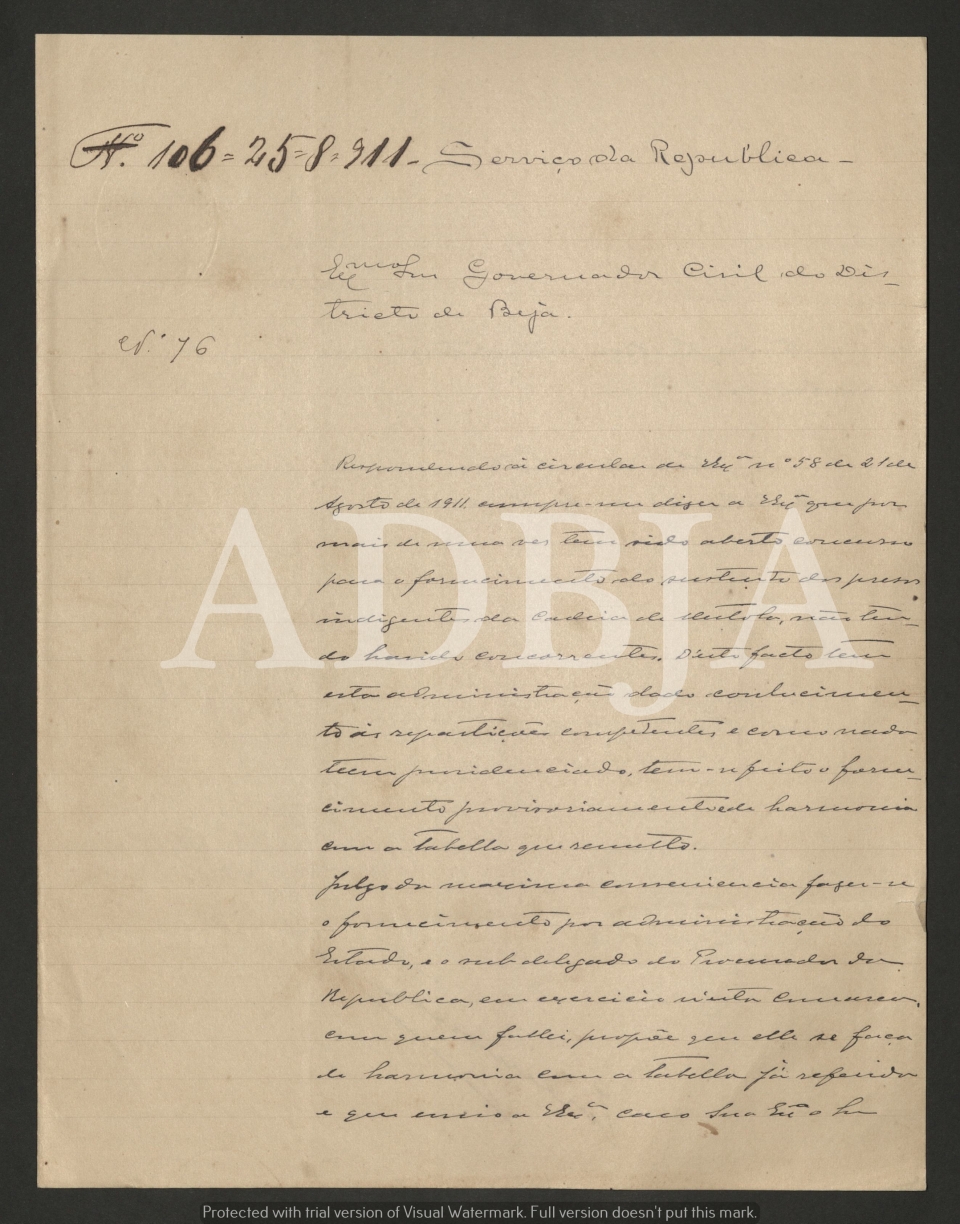 Nº. 106=25=8=911- Serviço da Republica-
Exmo Snr Governador Civil do Dis-
tricto de Beja.
Nº 76
Respondendo á circular de VExª nº 58 de 21 de
Agosto de 1911 cumpre-me dizer a VExª que por
mais de uma ves tem sido aberto concurso
para o fornecimento do sustento dos presos
indigentes da Cadeia de Mertola, não ten-
do havido concorrentes. D'este facto tem
esta administração dado conhecimen-
to ás repartições competentes e como nada
teem providenciado, tem-se feito o forne-
cimento provisoriamente de harmonia
com a tabella que remetto.
Julgo da maxima conveniencia fazer-se
o fornecimento por administração do
Estado, e o subdelegado do Procurador da
Republica, em exercicio n'esta Comarca,
com quem fallei, propõe que elle se faça
de harmonia com a tabella já referida
e que envio a VExª, caso Sua Exª o
ADBJA
Protected with trial version of Visual Watermark. Full version doesn't put this mark.